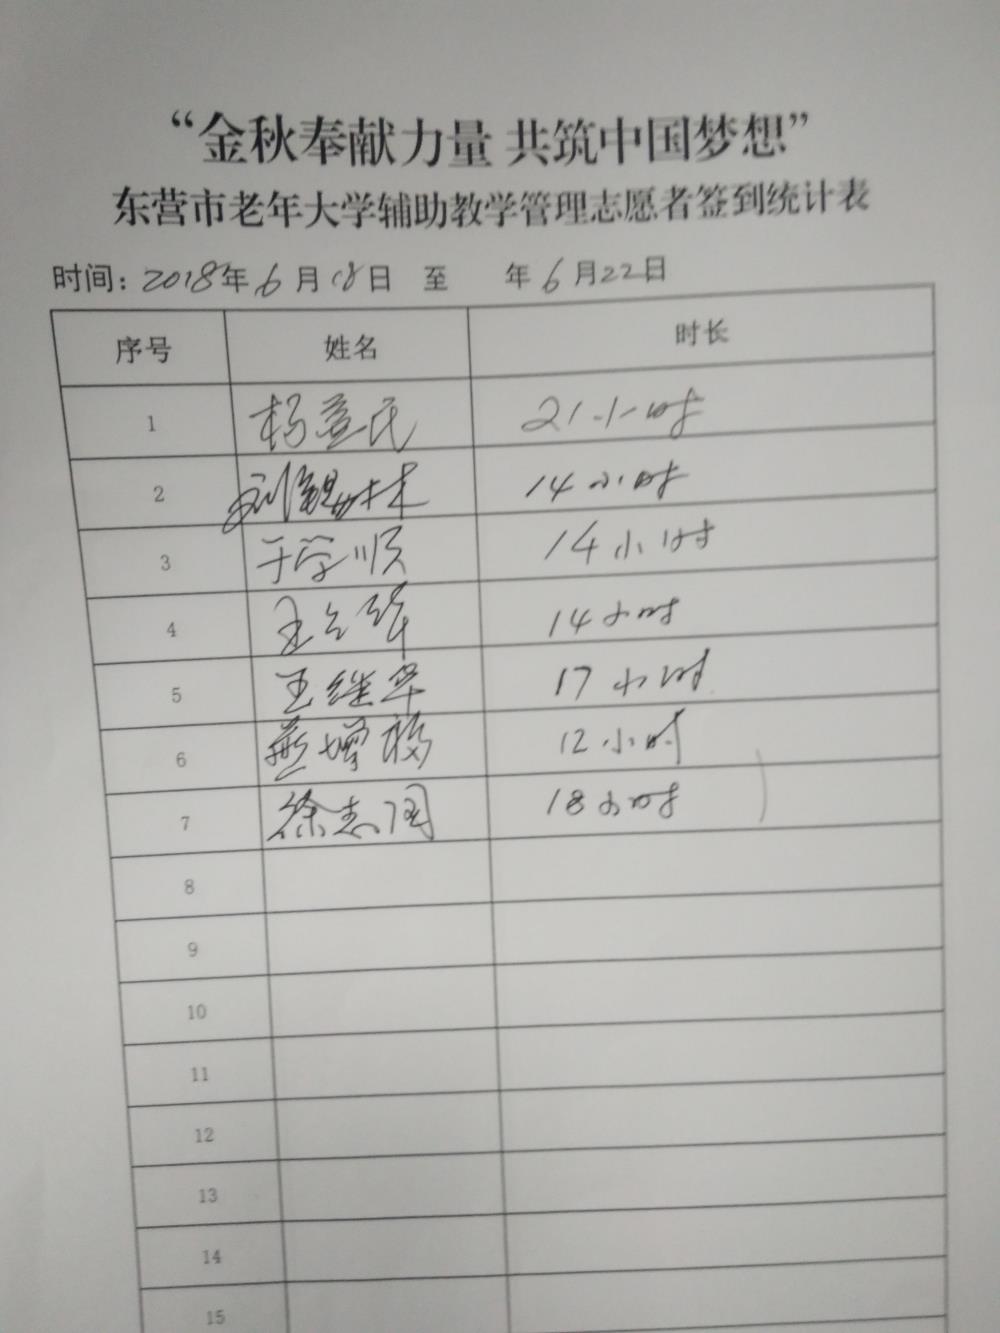 “金秋奉献力量 共筑中国梦想”
东营市老年大学辅助教学管理志愿者签到统计表
时间：2018年6月18日 至 年6月22日
序号 姓名 时长
1 杨益民 21小时
2 14小时
3 于学顺 14小时
4 王 14小时
5 王继华 17小时
6 燕增 12小时
7 徐志国 18小时
8
9
10
11
12
13
14
15